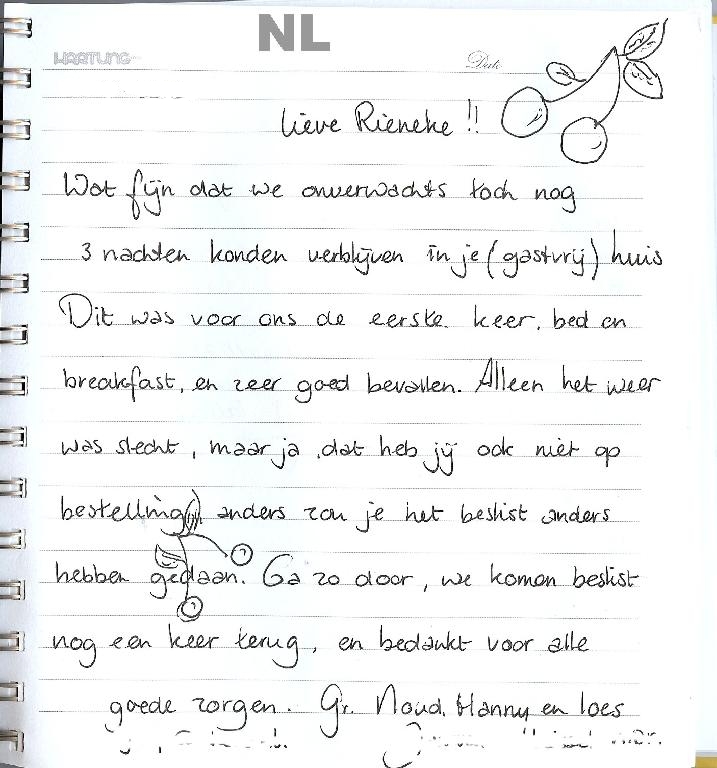 NL
HARTUNG
Date
lieve Rieneke !!
Wat fijn dat we onverwachts toch nog
3 nachten konden verblijven in je (gastvrij) huis
Dit was voor ons de eerste keer, bed en
breakfast, en zeer goed bevallen. Alleen het weer
was slecht, maar ja, dat heb jij ook niet op
bestelling, anders zou je het beslist anders
hebben gedaan. Ga zo door, we komen beslist
nog een keer terug, en bedankt voor alle
goede zorgen. Gr. Noud, Hanny en loes